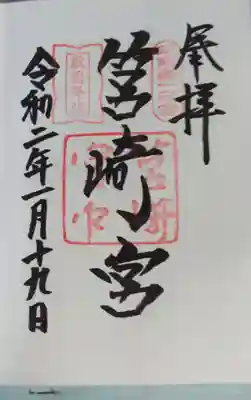 奉拝
筥崎宮
令和二年一月十九日